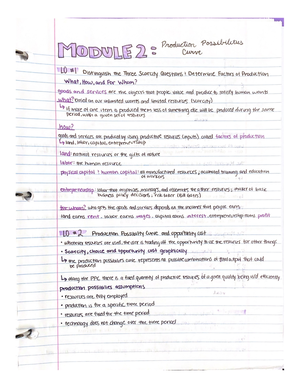 MODULE 2: Production Possibilities Curve
LO #1 Distinguish the Three Scarcity Questions & Determine Factors of Production
What, How, and For Whom?
goods and services are the objects that people value and produce to satisfy human wants
what? based on our unlimited wants and limited resources (scarcity)
↳ if more of one item is produced then less of something else will be produced during the same period, within a given set of resources
how?
goods and services are produced by using productive resources (inputs) called factors of production
↳ land, labor, capital, entrepreneurship
land: natural resources or the gifts of nature
labor: the human resource
physical capital & human capital: all manufactured resources; obtained training and education of workers
entrepreneurship: labor that organizes, manages, and assembles the other resources;
for whom? who gets the goods and services depends on the income that people earn.
land earns rent, labor earns wages, capital earns interest, entrepreneurship earns profit
LO #2 Production Possibility Curve and opportunity cost
• whenever resources are used, the cost is really all the opportunity to use the resources for other things.
• Scarcity, choice and opportunity cost graphically
↳ the production possibilities curve represents all possible combinations of total output that could be produced
↳ along the PPC, there is a fixed quantity of productive resources of a given quality being used efficiently
production possibilities assumptions
• resources are fully employed
• production is for a specific time period
• resources are fixed for the time period
• technology does not change over the time period